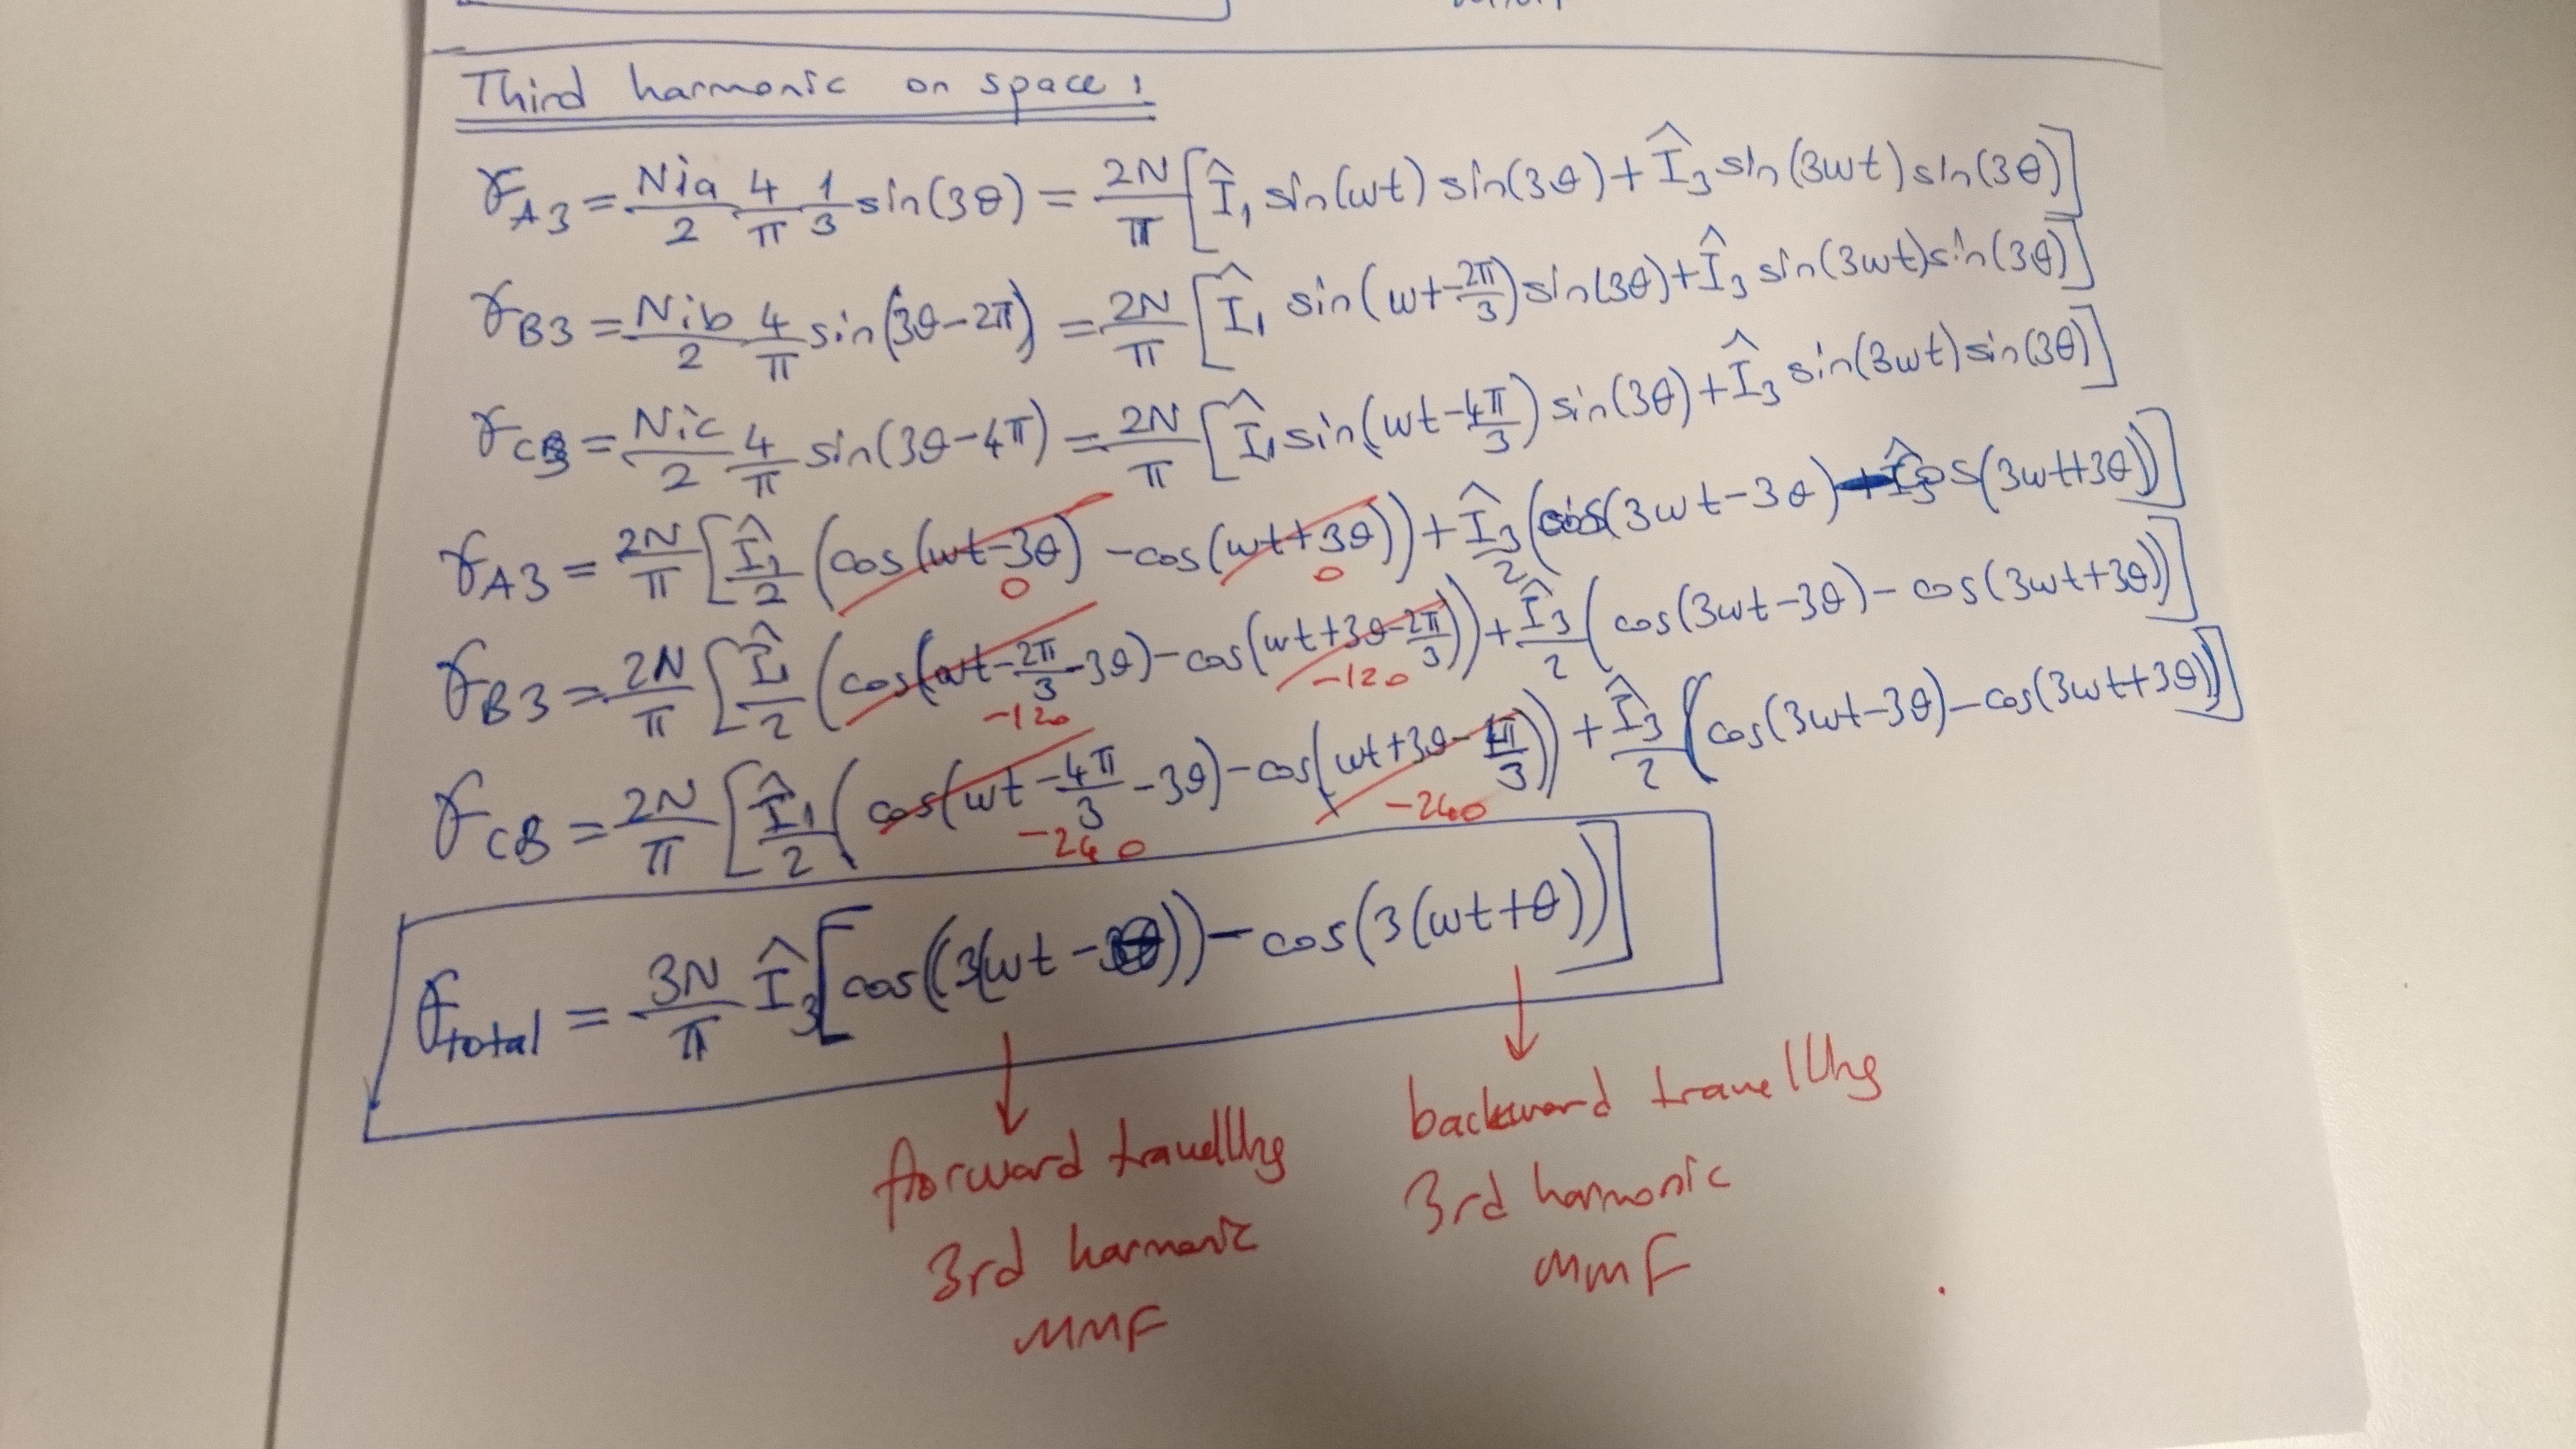 Third harmonic on space :
F_A3 = Nia/2 4/π 1/3 sin(3θ) = 2N/π [Î₁ sin(wt) sin(3θ) + Î₃ sin(3wt) sin(3θ)]
F_B3 = Nib/2 4/π sin(3θ-2π) = 2N/π [Î₁ sin(wt-2π/3) sin(3θ) + Î₃ sin(3wt) sin(3θ)]
F_C3 = Nic/2 4/π sin(3θ-4π) = 2N/π [Î₁ sin(wt-4π/3) sin(3θ) + Î₃ sin(3wt) sin(3θ)]
F_A3 = 2N/π [Î₁/2 (cos(wt-3θ) - cos(wt+3θ)) + Î₃/2 (cos(3wt-3θ) - cos(3wt+3θ))]
0 0
F_B3 = 2N/π [Î₁/2 (cos(wt-2π/3-3θ) - cos(wt+3θ-2π/3)) + Î₃/2 (cos(3wt-3θ) - cos(3wt+3θ))]
-120 -120
F_CB = 2N/π [Î₁/2 (cos(wt-4π/3-3θ) - cos(wt+3θ-4π/3)) + Î₃/2 (cos(3wt-3θ) - cos(3wt+3θ))]
-240 -240
F_total = 3N/π Î₃ [cos(3(wt-θ)) - cos(3(wt+θ))]
forward travelling
3rd harmonic
MMF
backward travelling
3rd harmonic
MMF